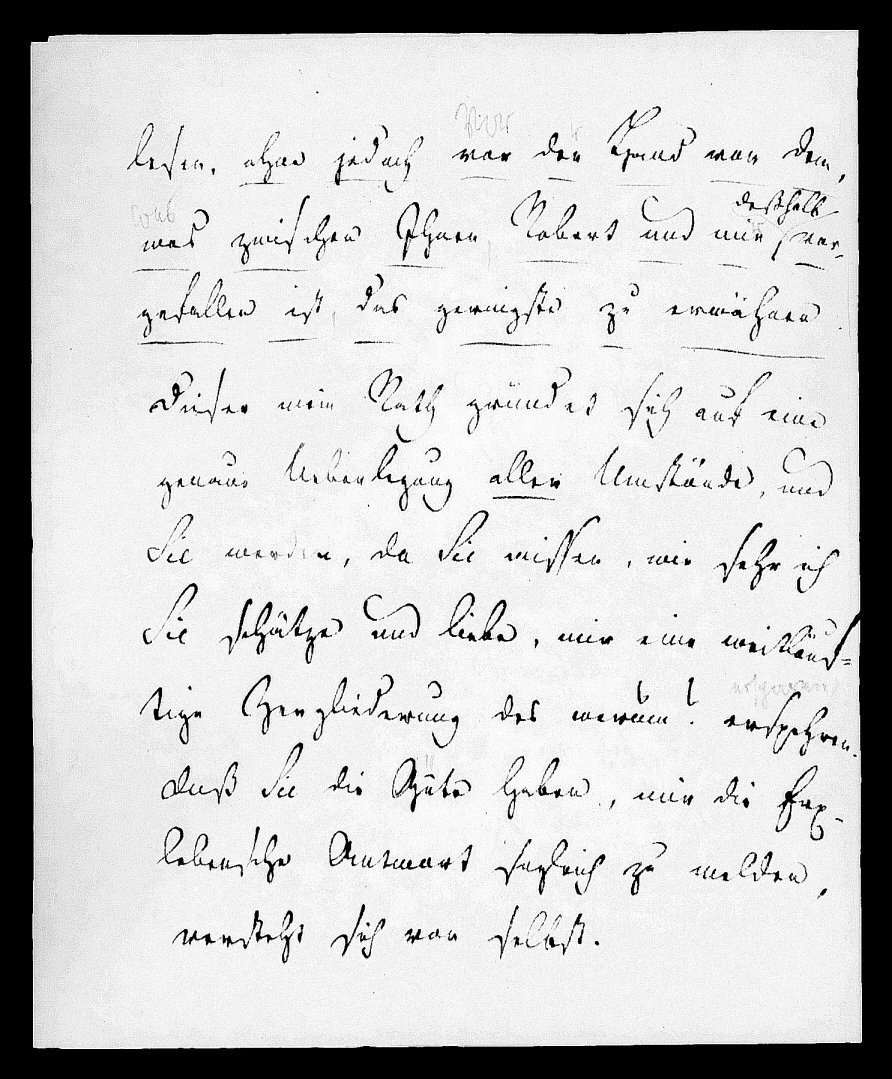 lesen, ohne jedoch vor der Hand von dem,
was zwischen Ihnen, Robert und mir deßhalb vor-
gefallen ist, das geringste zu erwähnen.
Dieser mein Rath gründet sich auf eine
genaue Ueberlegung aller Umstände, und
Sie werden, da Sie wissen, wie sehr ich
Sie schätze und liebe, mir eine weitläuf=
tige Zergliederung des warum? erspahren.
Daß Sie die Güte haben, mir die Erx-
lebensche Antwort sogleich zu melden,
versteht sich von selbst.